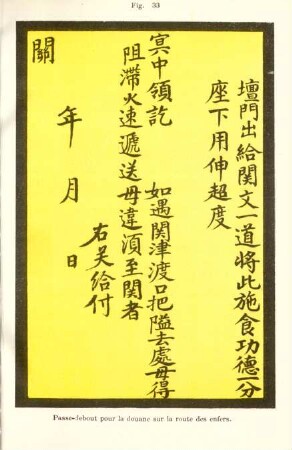 Fig. 33
壇門出給関文一道將此施食功德一分
座下用伸超度
冥中領訖 如遇関津渡口把隘去處毋得
阻滯火速遞送毋違須至関者
右关給付
年 月 日
關
Passe-debout pour la douane sur la route des enfers.